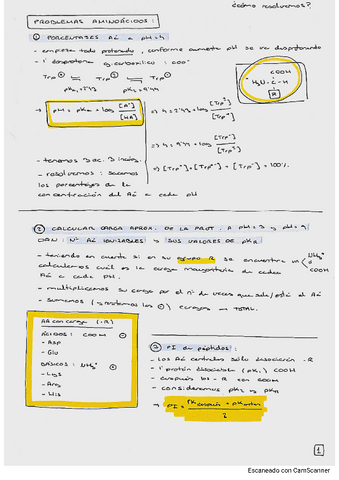 ¿cómo resolvemos?
PROBLEMAS AMINOÁCIDOS:
① PORCENTAJES AÁ a pH=4
- empieza todo protonado, conforme aumenta pH se va desprotonando
- 1º desprotona g. carboxílico: COO⁻
Trp ⊕ ⇌ Trp ⇌ Trp ⊖
pK₁=2'43 pK₂=9'44
COOH
H₂N - C - H
R
→ pH = pKa + log [A⁻]/[HA]
⇒ 4 = 2'43 + log [Trp]/[Trp⁺]
⇒ 4 = 9'44 + log [Trp⁻]/[Trp]
- tenemos 3 ec. 3 incóg.
- resolvemos: sacamos
los porcentajes de la
concentración del AÁ a cada pH
⇒ [Trp⁺] + [Trp⁻] + [Trp] = 100%
② CALCULAR CARGA APROX. DE LA PROT. A pH=3 y pH=9
DAN: Nº AÁ IONIZABLES y SUS VALORES DE pKR
- teniendo en cuenta si en su grupo R se encuentra un NH₃⁺ COOH
calculamos cuál es la carga mayoritaria de cada
AÁ a cada pH.
- multiplicamos su carga por el nº de veces que está el AÁ
- sumamos (y restamos los ⊖) cargas = TOTAL.
AA con carga (-R)
ÁCIDOS: COOH ⊖
- Asp
- Glu
BÁSICOS: NH₃⁺ ⊕
- Lys
- Arg
- His
③ PI de péptidos:
- los AÁ centrales sólo disocian -R
- 1º protón disociable (pK₁) COOH
- después los -R con COOH
- consideramos pK₂ y pKR
→ PI = pK después + pK antes / 2
1
Escaneado con CamScanner